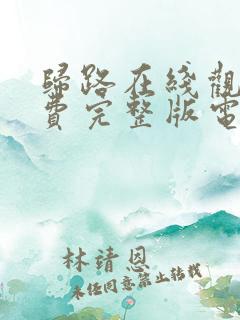 歸路在綫觀
費完整版電
林靖恩
未经同意禁止转载